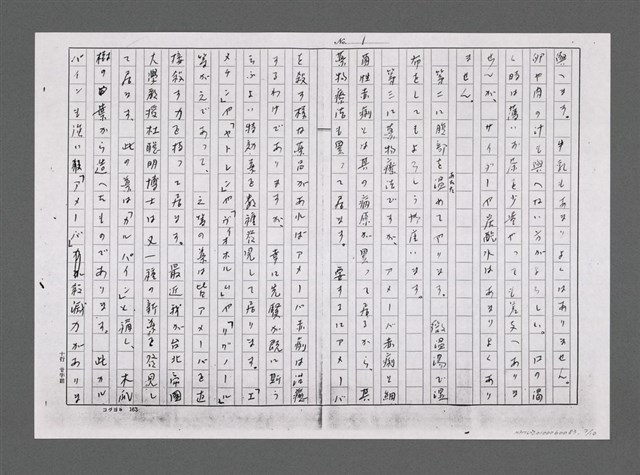 No. 1
與へます。牛乳もあまりよくはありません。
卵や肉の汁も與へない方がよろしい。口の渇
く時は薄いお茶を少量やっても差支へありま
せんが、サイダーや炭酸水はあまりよくあり
ません。
第二に腹部を温めてやります。微温湯で湿
布をしてもよろしう御座います。
第三に薬物療法ですが、アメーバ赤痢と細
菌性赤痢とは其の病原が異って居るから、其
薬物療法も異って居ます。要するにアメーバ
を殺す様な薬品があればアメーバ赤痢は治癒
するわけでありますが、幸に先賢が既に斯う
云ふよい特効薬を数種発見して居ります。「エ
メチン」や「ヤトレン」や「ヴィオホルム」や「リヴァノール」
等がそれであって、之等の薬は皆アメーバを直
接殺す力を持って居ます。最近我が台北帝国
大學教授杜聰明博士は又一種の新薬を発見し
て居ます。此の薬は「カルパイン」と稱し、木瓜
樹の葉から造ったものであります。此カル
パインも強い殺「アメーバ」力が
コクヨ 163